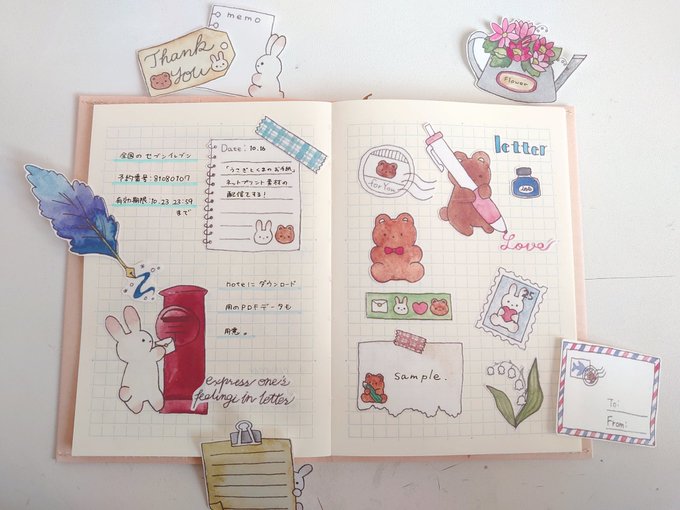 memo
Thank
You
Flower
全国のセブンイレブン
予約番号:81080107
有効期限:10.23 23:59
まで
Date: 10.16
「うさぎとくまのお手紙」
ネットプリント素材の
配信をする!
noteにダウンロード
用のPDFデータも
用意。
express one's
feelings in letter
for You
letter
ink
Love
25
sample.
To:
From: